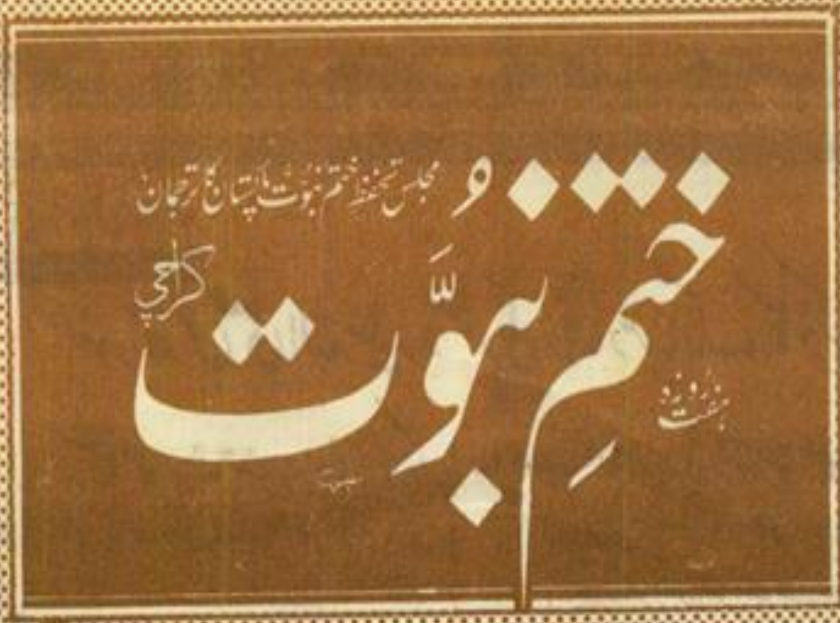 مجلس تحفظ ختم نبوت پاکستان کا ترجمان
ہفت روزہ
ختمِ نبوّت
کراچی